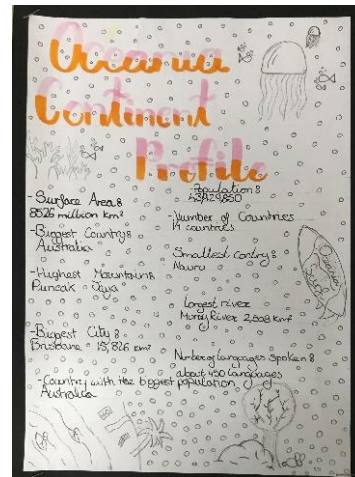 Oceania
Continent
Profile
-Surface Area:
8526 million km²
-Biggest Country:
Australia
-Highest Mountain:
Puncak Jaya
-Biggest City:
Brisbane - 15,826 km²
-Country with the biggest population
Australia
-Population:
43,429,850
-Number of Countries
14 countries
Smallest contry:
Nauru
Longest river
Murray River 2,508 km²
Number of Languages Spoken:
about 450 Languages
Oceania